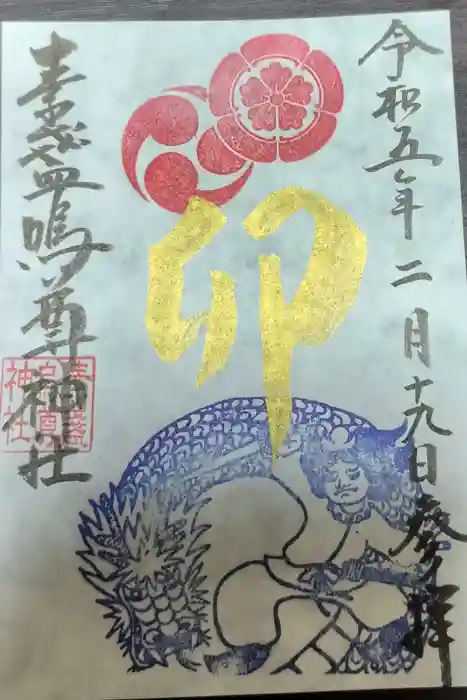 令和五年二月十九日 拝
卯
素盞嗚尊神社
素盞
嗚尊
神社